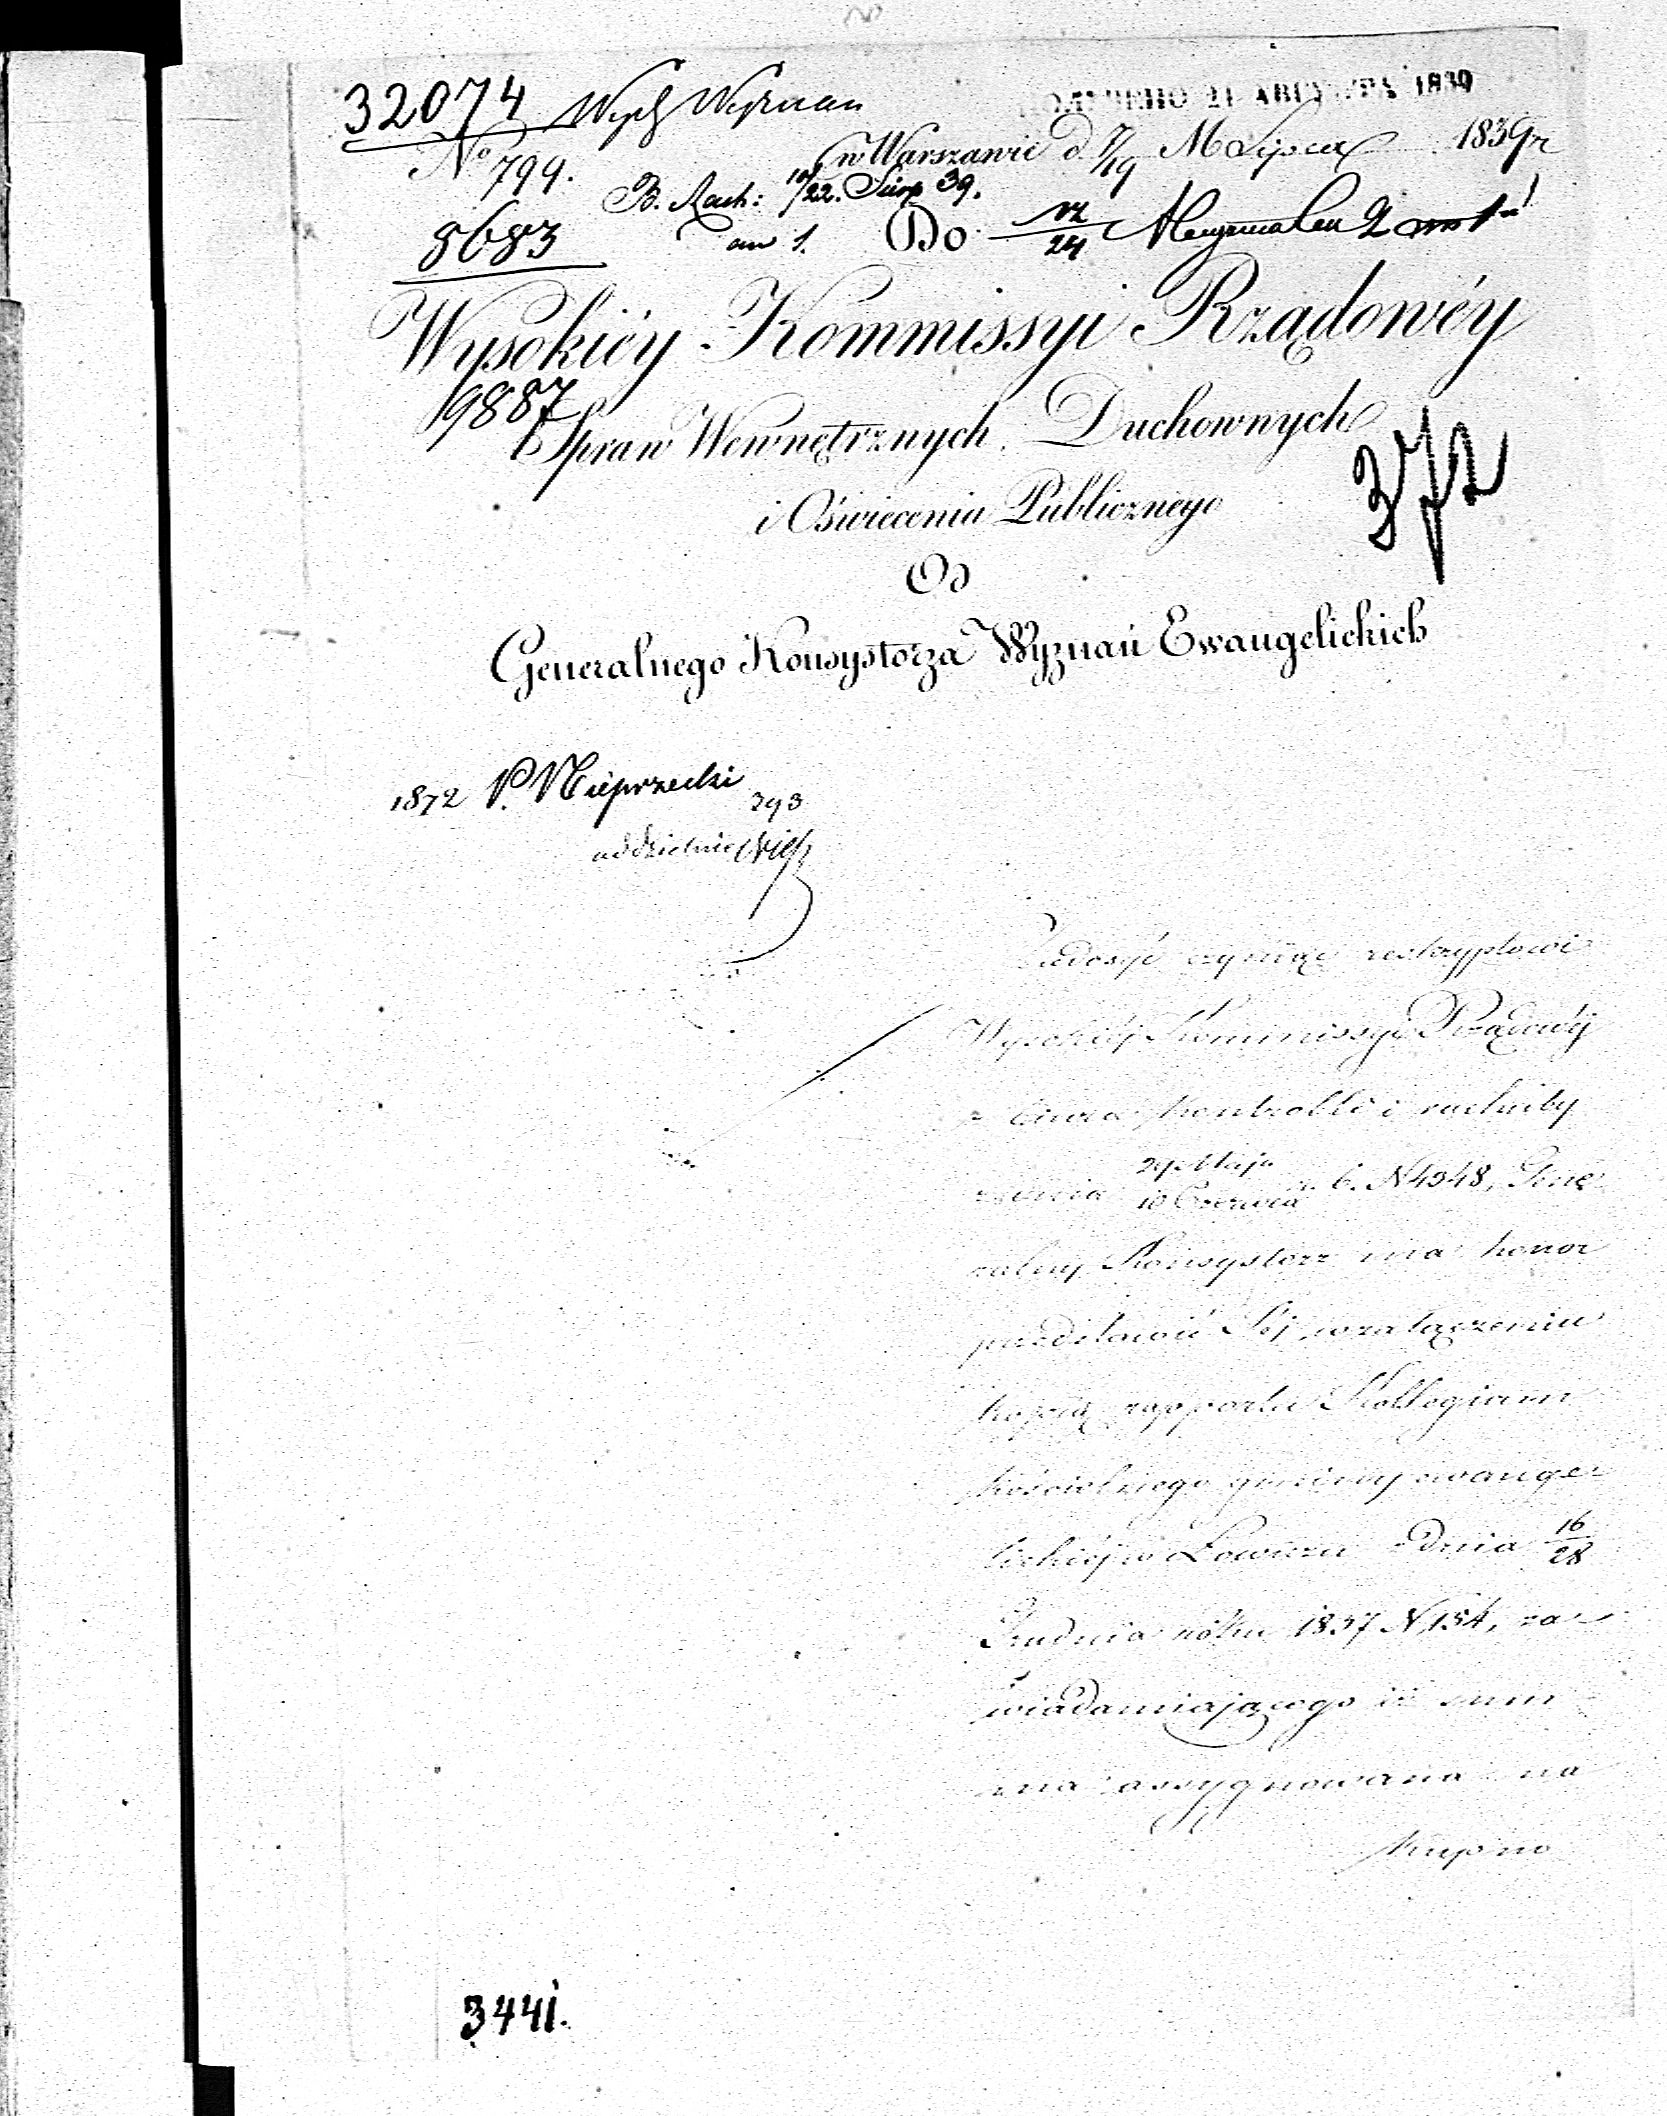 32074 Wydz Wyznan
ПОЛУЧЕНО 21 АВГУСТА 1839
No 799.
w Warszawie d. 7/19 M Lipca 1839 r
B. Rach: 10/22. Sierp 39.
8683
an 1. Do 12/24
Wysokiéy Kommissyi Rządowéy
19887
Spraw Wewnętrznych, Duchownych
i Oświecenia Publicznego
Od
Generalnego Konsystorza Wyznań Ewangelickich
1872 P. Nieprzecki
393
oddzielnie
Zadosyć czyniąc reskryptowi
Wysokiéj Kommissyi Rządowéj
z Biura Kontrolli i rachuby
z dnia 29 Maja / 10 Czerwca r. b. N 4948, Gene
ralny Konsystorz ma honor
przedstawić Jéj, w załączeniu
kopią rapportu Kollegium
kościelnego gminy ewange
lickiéj w Łowiczu z dnia 16/28
Grudnia roku 1837 N 154, za
wiadamiającego iż sum
ma assygnowana na
kupno
3441.